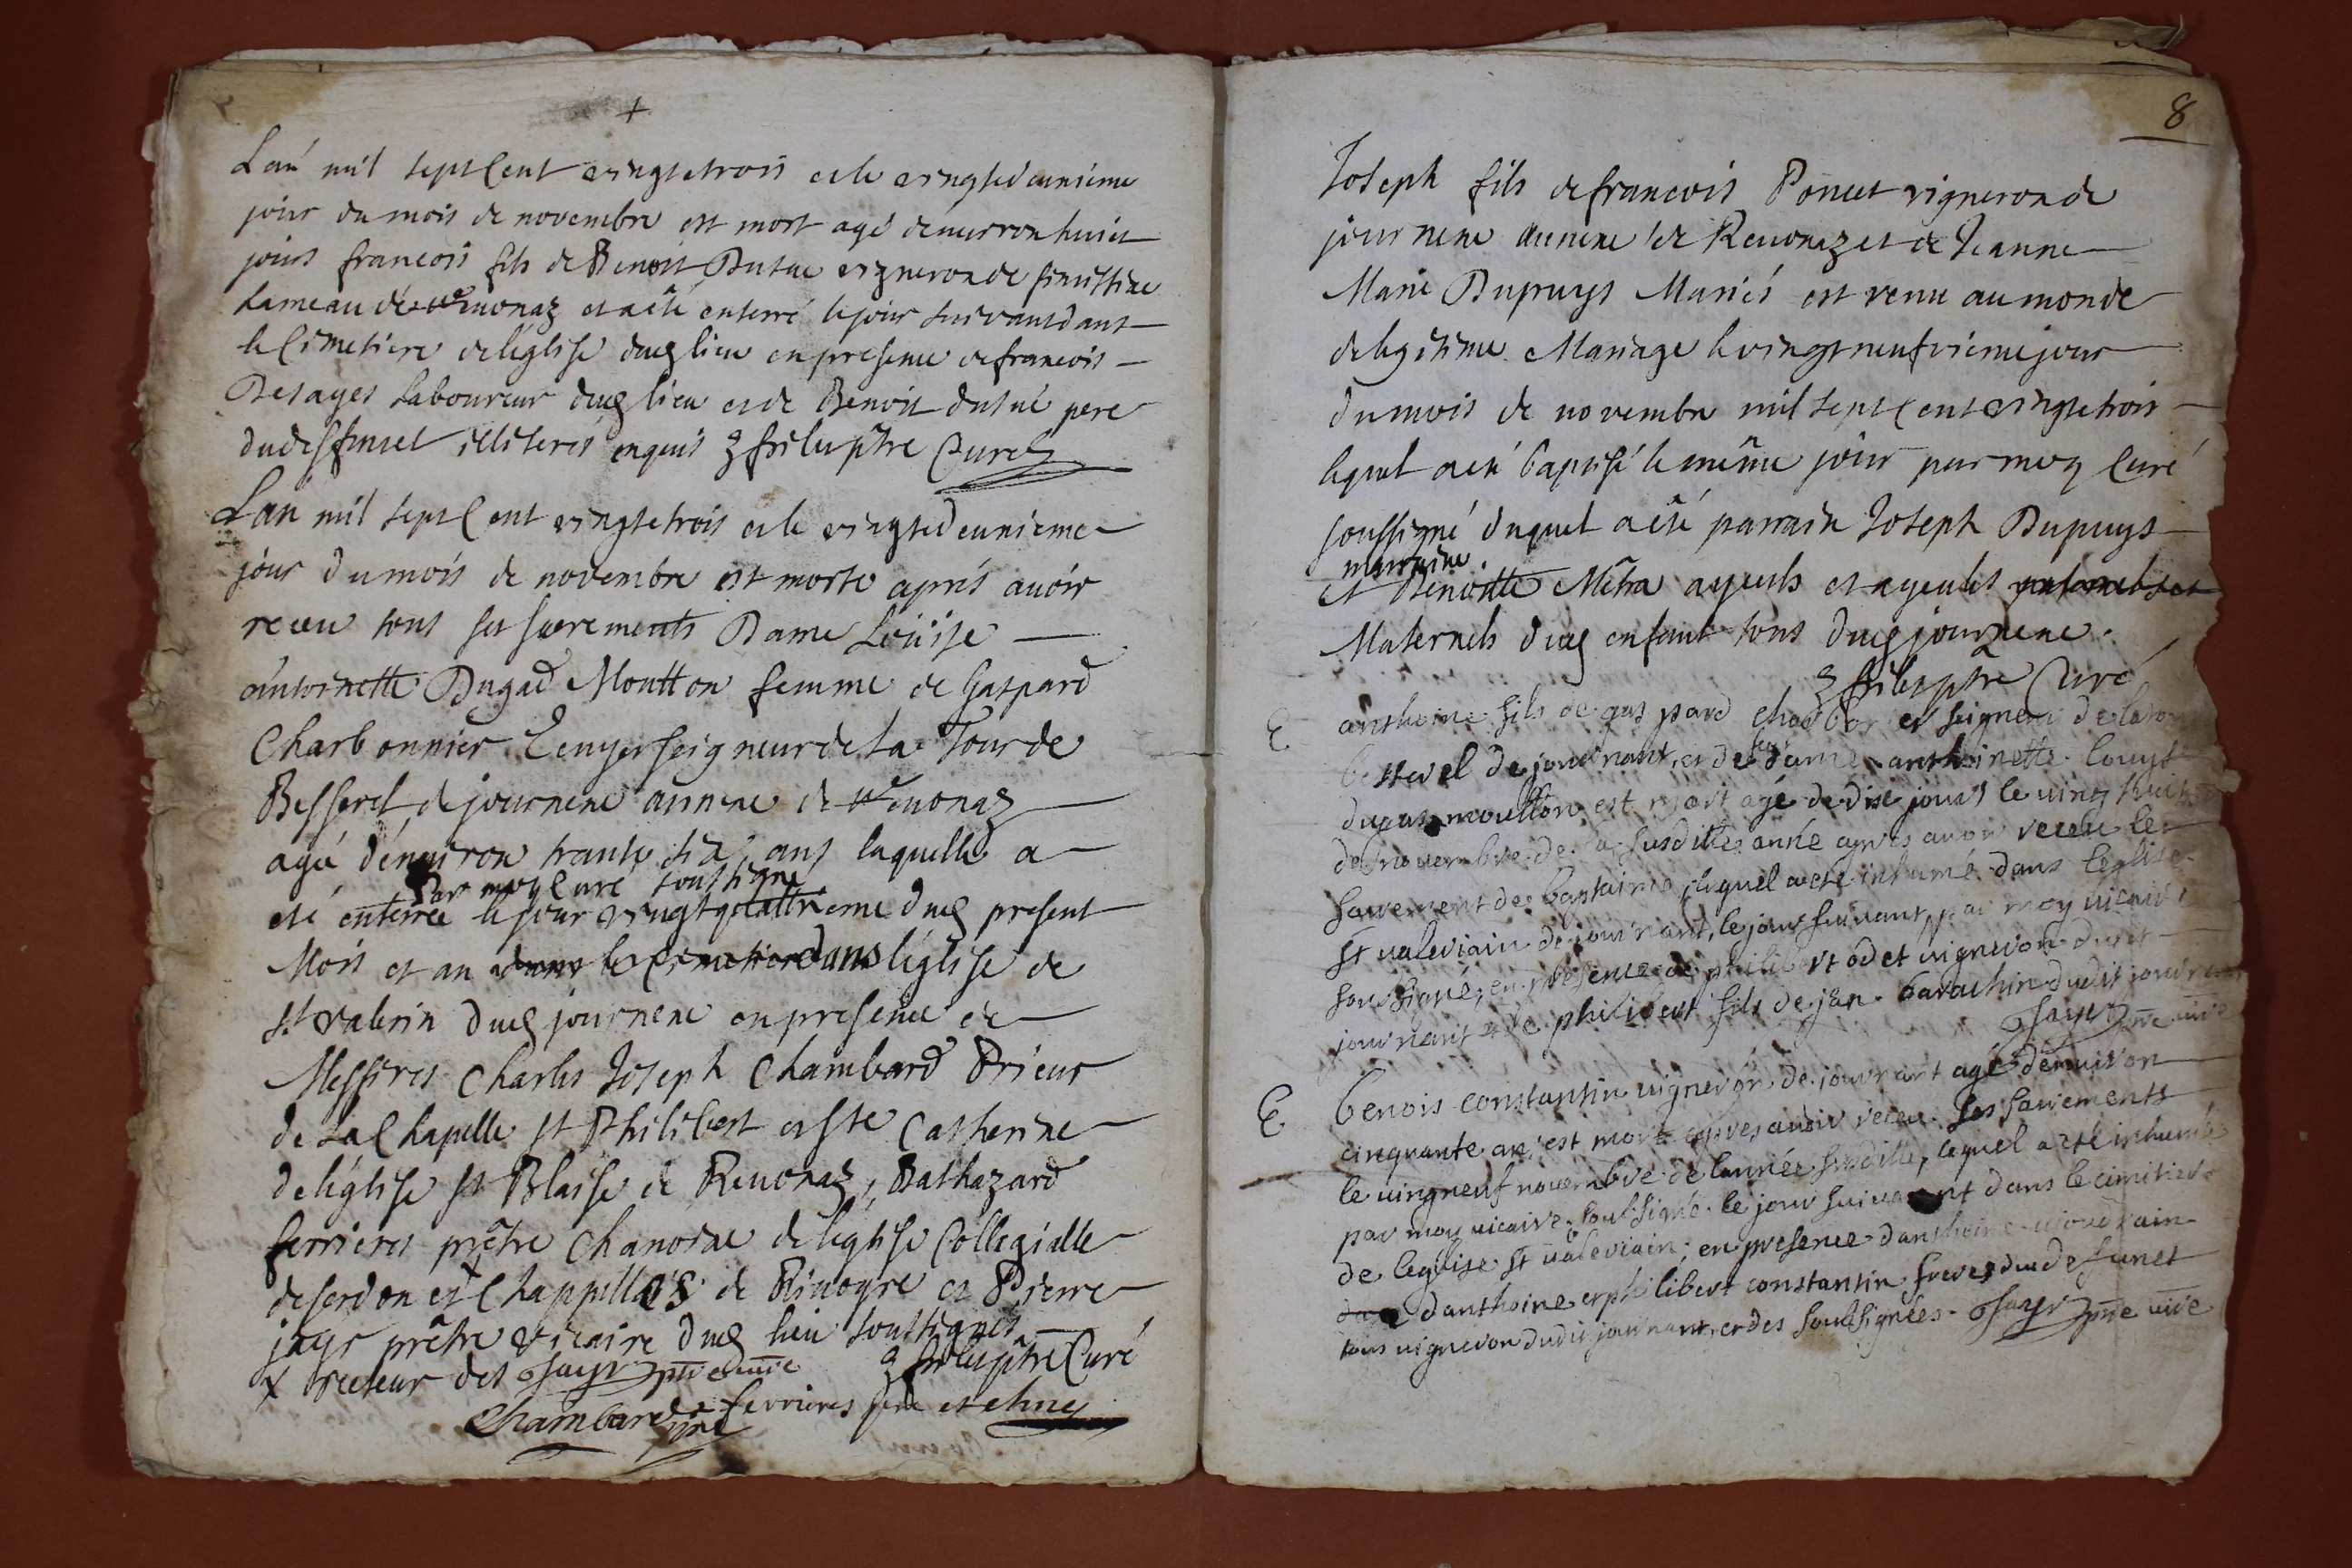 +
Lan mil sept Cent vingtetrois et le vingtedeunieme
jour du mois de novembre est mort agé denviron huict
jours francois fils de Benoit Dutue vigneron de
hameau de Reuonaz et a eté enterré le jour suivant dans
le Cimetiere de léglise dud lieu en presence de francois
Desages Laboureur dud lieu et de Benoit dutué pere
dud deffunct illiteres enquis ptre Curé
Lan mil sept Cent vingtetrois et le vingtedeunieme
jour du mois de novembre est morte aprés avoir
receu tous ses sacrements Dame Loüise
antoinette Dugad Moutton femme de Gaspard
Charbonnier Ecuyer seigneur de la Tour de
Besserel de journene annexe de Reuonaz
agée dénviron trante six ans laquelle a
par moy Curé soussigné
eté enterrée le jour vingtquattrieme dud present
Mois et an dans le Cimetiere dans léglise de
St valerin dud journene en presence de
Messires Charles Joseph Chambard Prieur
de La Chapelle St Philibert et Ste Catherine
de léglise St Blaise de Reuonaz, Balthazard
ferrieres prêtre Chanoine de léglise Collegialle
de Cerdon et + Chappelles de Rinoyre et Pierre
jayr prêtre vicaire dud lieu soussignés
x recteur des Jayr ptre vire ptre Curé
Chambard ptre ferrieres ptre et chne
8
Joseph fils de francois Poncet vigneron de
journene annexe de Reuonaz et de Jeanne
Marie Dupuys Mariés est venu au monde
de legitime Mariage le vingt neufvieme jour
du mois de novembre mil sept Cent vingtetrois
lequel a eté baptisé le même jour par moy Curé
soussigné duquel a été parrain Joseph Dupuys
marraine
et Benoitte Méha ayeuls et ayeules paternels et
Maternels dud enfant tous dud journene.
ptre Curé
E anthoine fils de gaspard charbo et seigneur de la tour
besserel de journant, et de feu dame anthoinette louyse
dugas moutton est mort agé de dise jours le uing huit
de nouembre de la susditte année apres auoir receu le
sacrement de baptaime, lequel a eté inhumé dans leglise
st ualeriain de journant, le jour suiuant par moy uicaire
sousigné, en presence de philibert odet uigneron dudit
journant et de philibert fils de jan barachin dudit journant
Jayr ptre uire
E benois constantin uigneron de journant agé denuiron
cinquante an est mort apres auoir receu les sacrements
le uingneuf nouembre de lannée susditte, lequel a eté inhumé
par moy uicaire soussigné le jour suiuant dans le cimitiere
de leglise st ualeriain, en presence danthoine
danthoine et philibert constantin freres du defunct
tous uigneron dudit journant, et des soussignées. Jayr ptre uire